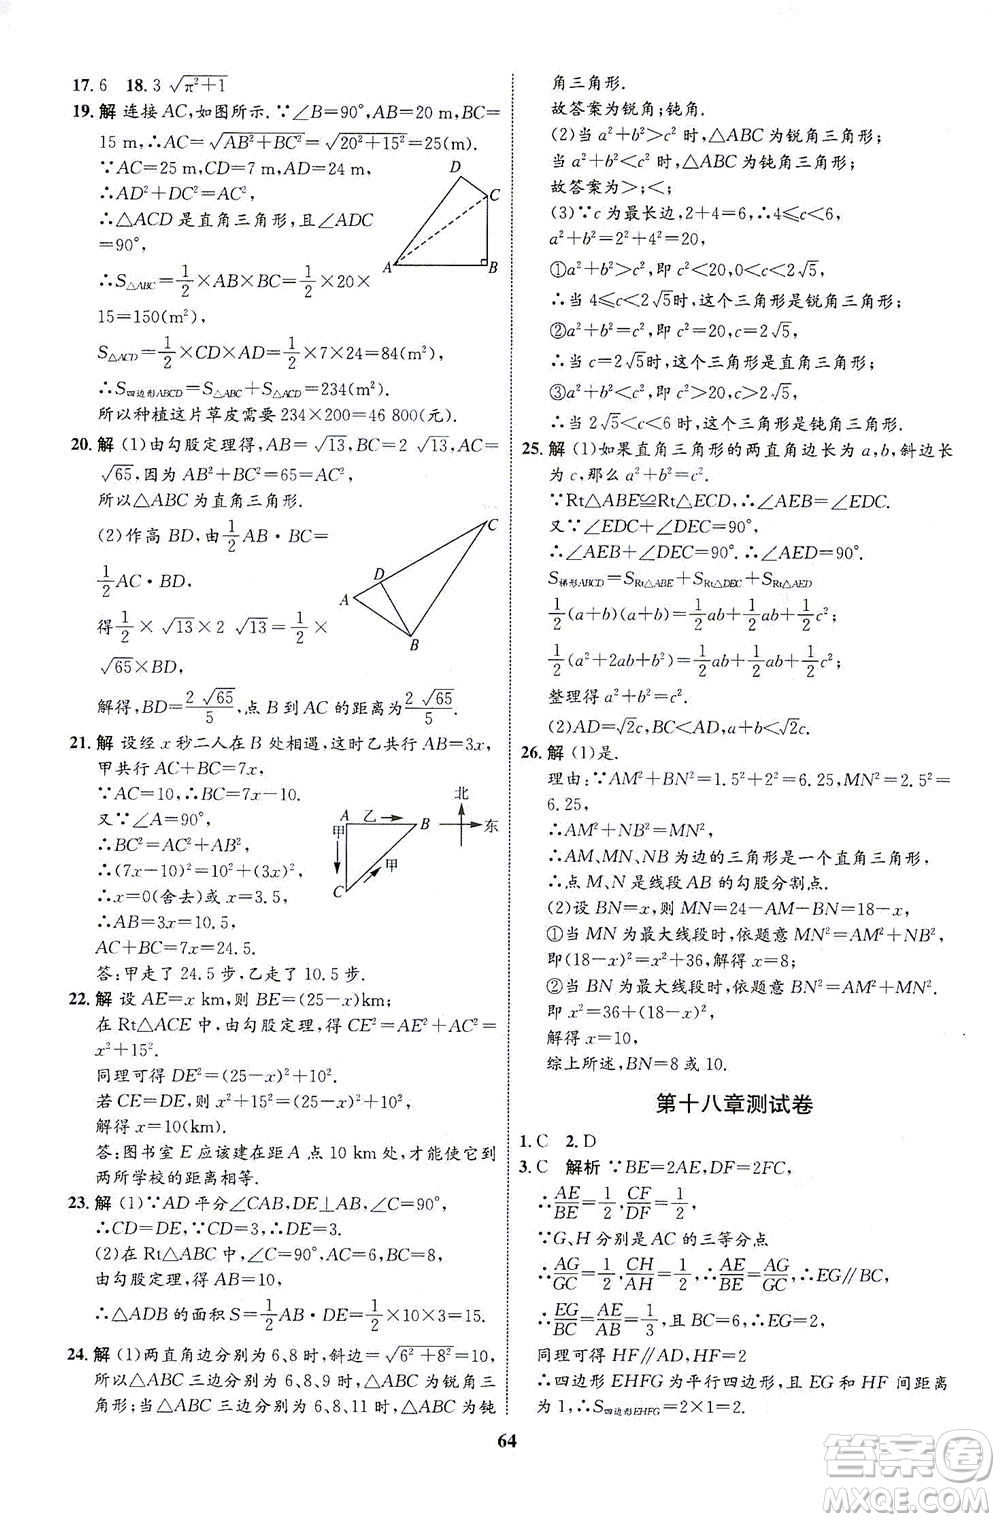 17.6　18.3 √(π²+1)
19.解 连接 AC,如图所示.∵∠B=90°,AB=20 m,BC=
15 m,∴AC=√(AB²+BC²)=√(20²+15²)=25(m).
∵AC=25 m,CD=7 m,AD=24 m,
∴AD²+DC²=AC²,
∴△ACD是直角三角形,且∠ADC
=90°,
∴S△ABC=1/2×AB×BC=1/2×20×
15=150(m²),
S△ACD=1/2×CD×AD=1/2×7×24=84(m²).
∴S四边形ABCD=S△ABC+S△ACD=234(m²).
所以种植这片草皮需要 234×200=46 800(元).
D
C
A
B
20.解 (1)由勾股定理得,AB=√13,BC=2 √13,AC=
√65,因为 AB²+BC²=65=AC²,
所以△ABC 为直角三角形.
(2)作高 BD,由1/2AB·BC=
1/2AC·BD,
得1/2×√13×2 √13=1/2×
√65×BD,
解得,BD=2√65/5,点 B 到 AC 的距离为2√65/5.
C
D
A
B
21.解 设经 x 秒二人在 B 处相遇,这时乙共行 AB=3x,
甲共行 AC+BC=7x,
∵AC=10,∴BC=7x-10.
又∵∠A=90°,
∴BC²=AC²+AB²,
∴(7x-10)²=10²+(3x)²,
∴x=0(舍去)或 x=3.5,
∴AB=3x=10.5,
AC+BC=7x=24.5.
答:甲走了 24.5 步,乙走了 10.5 步.
A 乙 B
甲
甲
C
北
东
22.解 设 AE=x km,则 BE=(25-x)km;
在 Rt△ACE 中,由勾股定理得 CE²=AE²+AC²=
x²+15².
同理可得 DE²=(25-x)²+10²;
若 CE=DE,则 x²+15²=(25-x)²+10²;
解得 x=10(km);
答:图书室 E 应该建在距 A 点 10 km 处,才能使它到
两所学校的距离相等.
23.解 (1)∵AD 平分∠CAB,DE⊥AB,∠C=90°,
∴CD=DE,∵CD=3,∴DE=3;
(2)在 Rt△ABC 中,∠C=90°,AC=6,BC=8,
由勾股定理,得 AB=10,
∴△ADB 的面积 S=1/2AB·DE=1/2×10×3=15.
24.解 (1)两直角边分别为 6、8时,斜边=√(6²+8²)=10,
所以△ABC 三边分别为 6、8、9时,△ABC 为锐角三
角形;当△ABC 三边分别为 6、8、11时,△ABC 为钝
角三角形.
故答案为锐角;钝角.
(2)当 a²+b²>c²时,△ABC为锐角三角形;
当 a²+b²<c²时,△ABC 为钝角三角形;
故答案为>;<;
(3)∵c 为最长边,2+4=6,∴4≤c<6,
a²+b²=2²+4²=20,
①a²+b²>c²,即 c²<20,0<c<2√5,
∴当 4≤c<2√5时,这个三角形是锐角三角形;
②a²+b²=c²,即 c²=20,c=2√5,
∴当 c=2√5时,这个三角形是直角三角形;
③a²+b²<c²,即 c²>20,c>2√5,
∴当 2√5<c<6时,这个三角形是钝角三角形.
25.解 (1)如果直角三角形的两直角边长为 a,b,斜边长
为 c,那么 a²+b²=c².
∵Rt△ABE≌Rt△ECD,∴∠AEB=∠EDC.
又∵∠EDC+∠DEC=90°,
∴∠AEB+∠DEC=90°.∴∠AED=90°.
S梯形ABCD=SRt△ABE+SRt△DEC+SRt△AED
1/2(a+b)(a+b)=1/2ab+1/2ab+1/2c²;
1/2(a²+2ab+b²)=1/2ab+1/2ab+1/2c²;
整理得 a²+b²=c².
(2)AD=√2c,BC<AD,a+b<√2c.
26.解 (1)是.
理由:∵AM²+BN²=1.5²+2²=6.25,MN²=2.5²=
6.25,
∴AM²+NB²=MN²,
∴AM、MN、NB为边的三角形是一个直角三角形,
∴点 M、N 是线段 AB 的勾股分割点.
(2)设 BN=x,则 MN=24-AM-BN=18-x,
①当 MN 为最大线段时,依题意 MN²=AM²+NB²,
即(18-x)²=x²+36,解得 x=8;
②当 BN 为最大线段时,依题意 BN²=AM²+MN².
即 x²=36+(18-x)²,
解得 x=10,
综上所述,BN=8 或 10.
第十八章测试卷
1.C　2.D
3.C　解析 ∵BE=2AE,DF=2FC,
∴AE/BE=1/2,CF/DF=1/2,
∵G、H 分别是 AC 的三等分点
∴AG/GC=1/2,CH/AH=1/2,∴AE/BE=AG/GC,∴EG∥BC,
∴EG/BC=AE/AB=1/3,且 BC=6,∴EG=2,
同理可得 HF∥AD,HF=2
∴四边形 EHFG 为平行四边形,且 EG 和 HF 间距离
为 1,∴S四边形EHFG=2×1=2.
64
答案圈
MXQE.COM